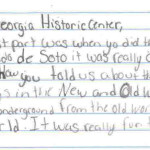 eorgia Historic Center,
t part was when yo did th
do de Soto it was really c
How you told us about th
s in the New and Old w
nderground from the old wor
rld. It was really fun t